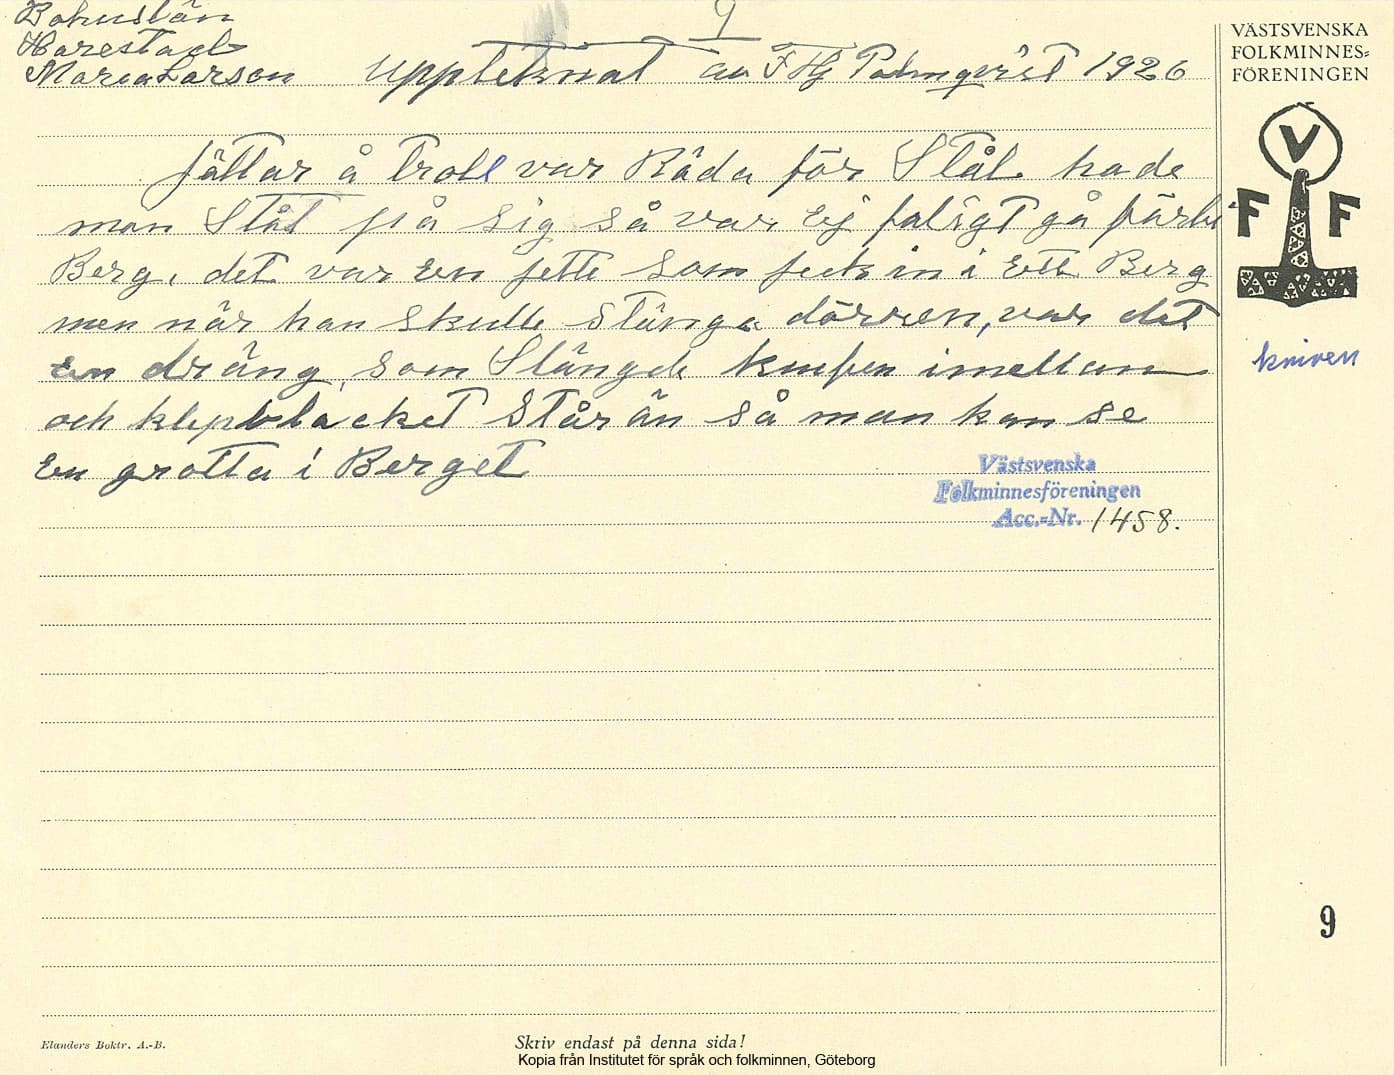 Bohuslän
Harestad
Maria Larson
9
Uppteknat av F Hj Palmqvist 1926
VÄSTSVENSKA
FOLKMINNES-
FÖRENINGEN
V
F F
Jättar å Troll var Räda för Stål hade
man Stål på sig så var Ej faligt gå färbi
Berg. det var En jette som feck in i Ett Berg
men när han skulle stänga dörren, var det
En dräng som Slängde knifen imellan
kniven
och klepblacket Står än så man kan se
En grotta i Berget
Västsvenska
Folkminnesföreningen
Acc.-Nr. 1458.
9
Elanders Boktr. A.-B.
Skriv endast på denna sida!
Kopia från Institutet för språk och folkminnen, Göteborg